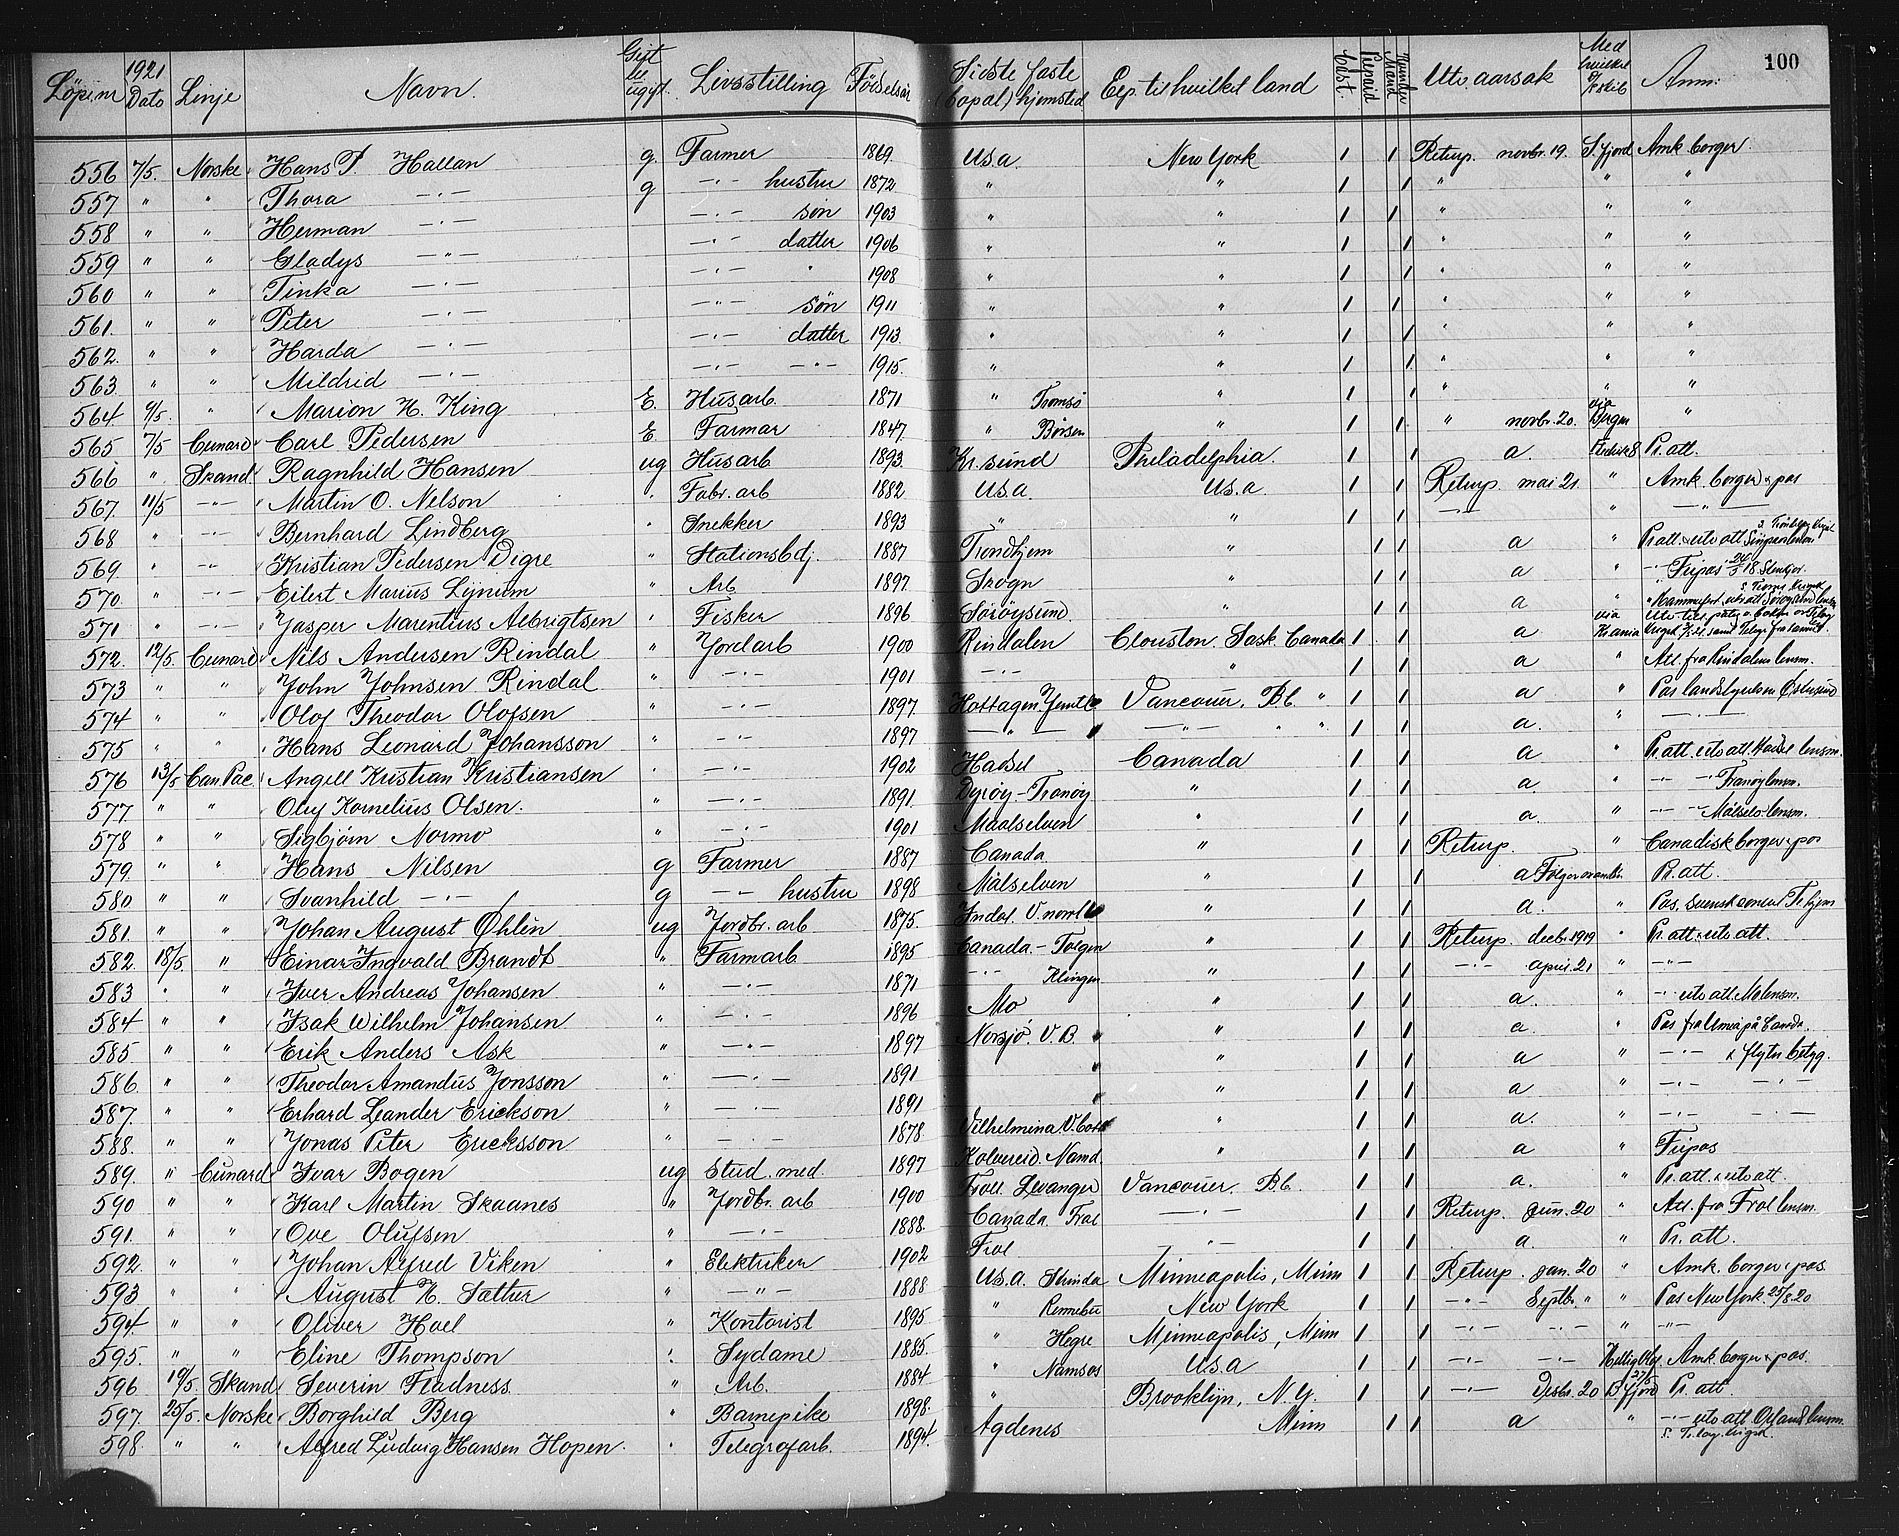 Löpenr | 1921 Dato | Linje | Navn. | Gift el. ugift. | Livsstilling | Födselsaar | Sidste faste (bopal) hjemsted | Exp. til hvilket land | Utv. aarsak | Med hvilket skib | Anm: 100
556 7/5. Norske Hans P. Hallan g. Farmer 1869. Usa New York 1 1 Returp. novbr. 19. S.fjord Amk borger
557 " " Thora —·— g —·— hustru 1872. " " 1 1 " " "
558 " " Herman —·— —·— søn 1903 " " 1 1 " " "
559 " " Gladys —"— —·— datter 1906 " " 1 1 " " "
560 " " Tinka —·— —·— " 1908 " " 1 1 " " "
561. " " Peter —·— —"— søn 1911 " " 1 1 " " "
562. " " Harda —·— —·— datter 1913. " " 1 1 " " "
563. " " Mildrid —·— —·— —·— 1915. " " 1 1 " " "
564. 9/5. " Marion H. King E. Husarb. 1871 " Tromsö " 1 1 " via "
565 7/5 Cunard Carl Pedersen E. Farmar 1847. " Börsen " 1 1 " novbr. 20. Bergen "
566 " Skand Ragnhild Hansen ug Husarb 1893. Kr.sund Philadelphia. 1 1 a. Fredrik 8 Pr. att.
567. 11/5 —·— Martin O. Nelson " Fabr. arb 1882 Usa Usa. 1 1 Returp. mai 21 " Amk borger & pas
568 " —·— Bernhard Lindberg " Snekker 1893 " " 1 1 —·— " —"—
569. " —·— Kristian Pedersen Digre " Stationsbdj. 1887 Trondhjem " 1 1 a " Pr. att. & utv att
570. " —·— Eilert Marius " Arb 1897. " 1 1 a " —·— Fripas 18.
571 " —·— Jasper Marentius Albrigtsen " Fisker 1896 Söröysund. " 1 1 a "
572. 12/5. Cunard Nils Andersen Rindal " Jordarb 1900 Rindalen Clouston. Sask. Canada 1 1 a via Kr.ania
573 " " John Johnsen Rindal " —·— 1901 —·— " 1 1 a " Att. fra Rindalens lensm.
574 " " Olof Theodor Olofsen " —·— 1897. Hottagen Jemtl. Vancouver. B.C. " 1 1 a " Pas landshyvelsen Östersund
575 " " Hans Leonard Johansson " —·— 1897 —"— —"— " " 1 1 a. " —·—
576 13/5 Can Pac. Angell Kristian Kristiansen " —·— 1902 Hadsel Canada 1 1 a " Pr. att. utv att. Hadsel lensm.
577. " " Oluf Kornelius Olsen. " —·— 1891. Dyröy - Tranöy " 1 1 a. " —·— —"— Tranöy lensm.
578 " " Sigbjörn Normo " —·— 1901 Maalselven " 1 1 a. " —·— —"— Målselv lensm.
579. " " Hans Nilsen g Farmer 1887 Canada " 1 1 Returp. " Canadisk borger & pas
580 " " Svanhild —·— g —·— hustru 1898 Målselven " 1 1 a Følger manden. Pr. att.
581. " " Johan August Öhlén ug Jordbr. arb 1875. Indal. V. norrl. " 1 1 a. " Pas. svensk consul T.hjem
582. 18/5. " Einar Ingvald Brandt " Farmarb 1895 Canada - Tolgen " 1 1 Returp. decbr. 1919 " Pr. att. utv att.
583 " " Iver Andreas Johansen " —·— 1871 —·— Klingen " 1 1 —·— april. 21 " —"—
584 " " Isak Wilhelm Johansen " —·— 1896 Mo " 1 1 a " —·— utv att. Mo lensm.
585 " " Erik Anders Ask " —·— 1897 Norsjö. V.B. " 1 1 a. " Pas fra Umeå på Canada.
586 " " Theodor Amandus Jonsson " —·— 1891 " " 1 1 a " —·— & flytn betyg.
587. " " Erhard Leander Erickson " —·— 1891 " " 1 1 a " —·— —·—
588. " " Jonas Peter Ericksson " —·— 1878 Vilhelmina V.bott " 1 1 a. " —·— —·—
589. " Cunard Ivar Bogen ug Stud. med. 1897 Kolvereid. Namd. " 1 1 a " Fripas
590 " " Karl Martin Skaanes " Jordbr. arb 1900 Frol. Levanger Vancouver. B.C. 1 1 a. " Pr. att. & utv att.
591. " " Ove Olufsen " —·— 1888. Canada. Frol —·— 1 1 Returp. jun. 20 " Att. fra Frol lensm.
592. " " Johan Alfred Viken " Elektriker 1902 Frol —·— 1 1 a. " Pr. att.
593 " " August H. Sather " —"— 1888 Usa. Strinda Minneapolis, Minn 1 1 Returp. jan. 20 " Amk. borger & pas
594. " " Oliver Hoel " Kontorist 1895 " Rennebu New York 1 1 —"— Septbr. " " Pas New York 25/8. 20
595. " " Eline Thompson " Sydame 1885. " Hegre Minneapolis, Minn 1 1 —·— —·— " —"—
596 19/5. Skand Severin Fladness. " Arb. 1884 " Namsos Usa 1 1 —·— —·— Hellig Olaf Amk. borger & pas.
597. 25/5. Norske Borghild Berg " Barnepike 1898. " Brooklyn, N.Y. 1 1 —·— Desbr. 20 27/5 B.fjord Pr. att.
598. " " Alfred Ludvig Hansen Hopen. " Telegrafarb. 1894. Agdenes Minn 1 1 a " —·— utv att. Örland lensm.